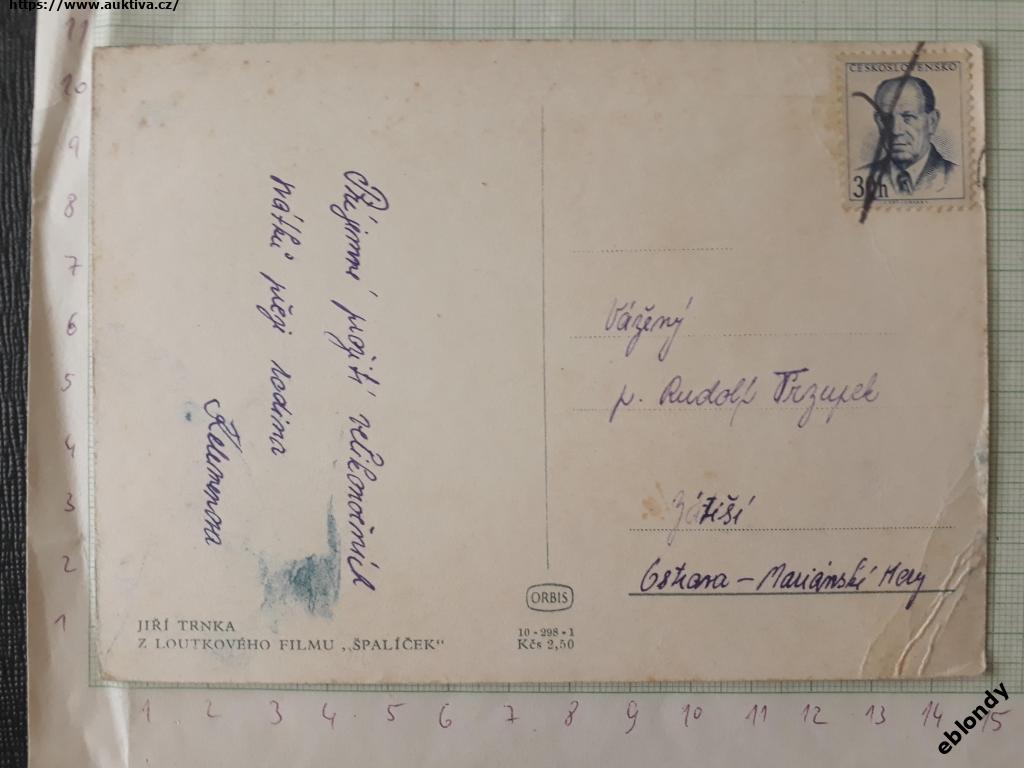 https://www.auktiva.cz/
ČESKOSLOVENSKO
30h
Příjemné prožití velikonočních
svátků přeje rodina
Kelemenova
Vážený
p. Rudolf Trzupek
Zátiší
Ostrava - Mariánské Hory
ORBIS
JIŘÍ TRNKA
Z LOUTKOVÉHO FILMU „ŠPALÍČEK"
10 - 298 - 1
Kčs 2,50
11
10
9
8
7
6
5
4
3
2
1
1 2 3 4 5 6 7 8 9 10 11 12 13 14 15
eblondy